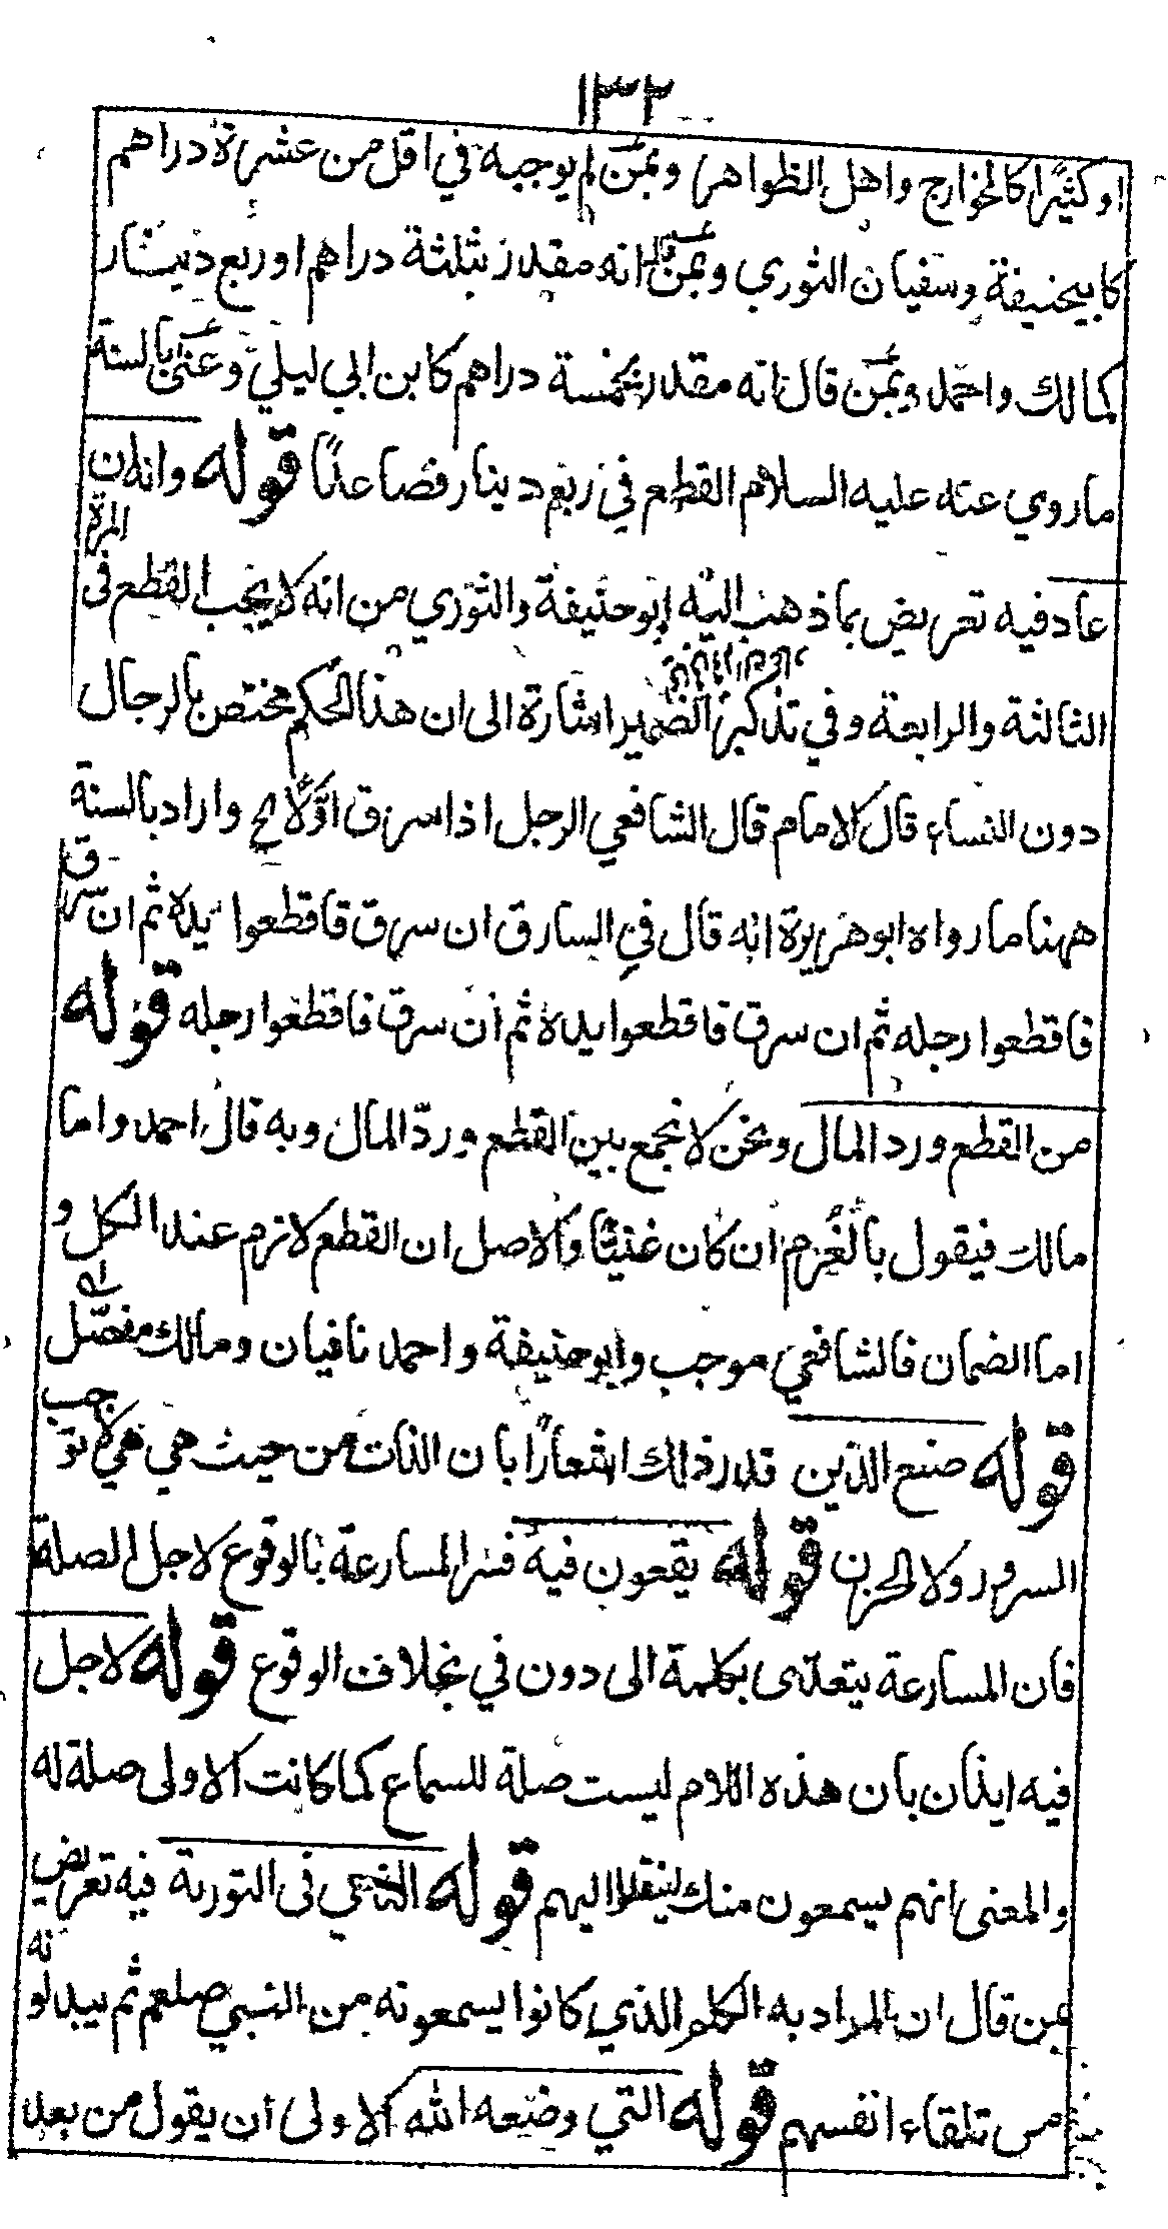 ١٣٢
او كثيرا كالخوارج واهل الظواهر وعمن لم يوجبه في اقل من عشرة دراهم
كابيحنيفة وسفيان الثوري وعمن قال انه مقدر بثلثة دراهم او ربع دينار
كمالك واحمد وعمن قال انه مقدر بخمسة دراهم كابن ابي ليلي وعنى بالسنة
ما روي عنه عليه السلام القطع في ربع دينار فصاعدًا قوله وانه ان
عاد فيه تعريض بما ذهب اليه ابو حنيفة والثوري من انه لا يجب القطع فى المرة
الثالثة والرابعة وفي تذكير الضمير اشارة الى ان هذا الحكم مختص بالرجال
دون النساء قال الامام قال الشافعي الرجل اذا سرق اوّلًا الخ واراد بالسنة
ههنا ما رواه ابو هريرة انه قال في السارق ان سرق فاقطعوا يده ثم ان سرق
فاقطعوا رجله ثم ان سرق فاقطعوا يده ثم ان سرق فاقطعوا رجله قوله
من القطع ورد المال ونحن لا نجمع بين القطع وردّ المال وبه قال احمد واما
مالك فيقول بالغُرم ان كان غنيًّا والاصل ان القطع لازم عند الكل و
اما الضمان فالشافعي موجب وابو حنيفة واحمد نافيان ومالك مفصّل
قوله صنع الذين قدر ذلك اشعارًا بان الذات من حيث هي هي لا توجب
السرور ولا الحزن قوله يقعون فيه فسر المسارعة بالوقوع لاجل الصلة
فان المسارعة يتعدى بكلمة الى دون في بخلاف الوقوع قوله لاجل
فيه ايذان بان هذه اللام ليست صلة للسماع كما كانت الاولى صلة له
والمعنى انهم يسمعون منك لينقلوا اليهم قوله التي فى التورية فيه تعريض
عن قال ان المراد به الكلم الذي كانوا يسمعونه من النبي صلعم ثم يبدلونه
من تلقاء انفسهم قوله التي وضعه الله الاولى ان يقول من بعد